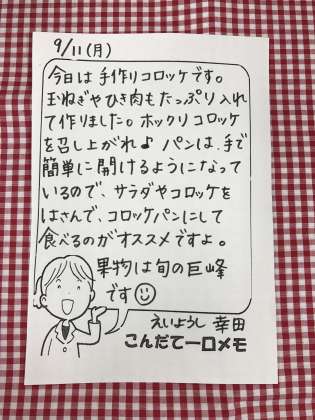 9/11(月)
今日は手作りコロッケです。
玉ねぎやひき肉もたっぷり入れ
て作りました。ホックリコロッケ
を召し上がれ♪パンは、手で
簡単に開けるようになって
いるので、サラダやコロッケを
はさんで、コロッケパンにして
食べるのがオススメですよ。
果物は旬の巨峰
です☺
えいようし 幸田
こんだて一口メモ